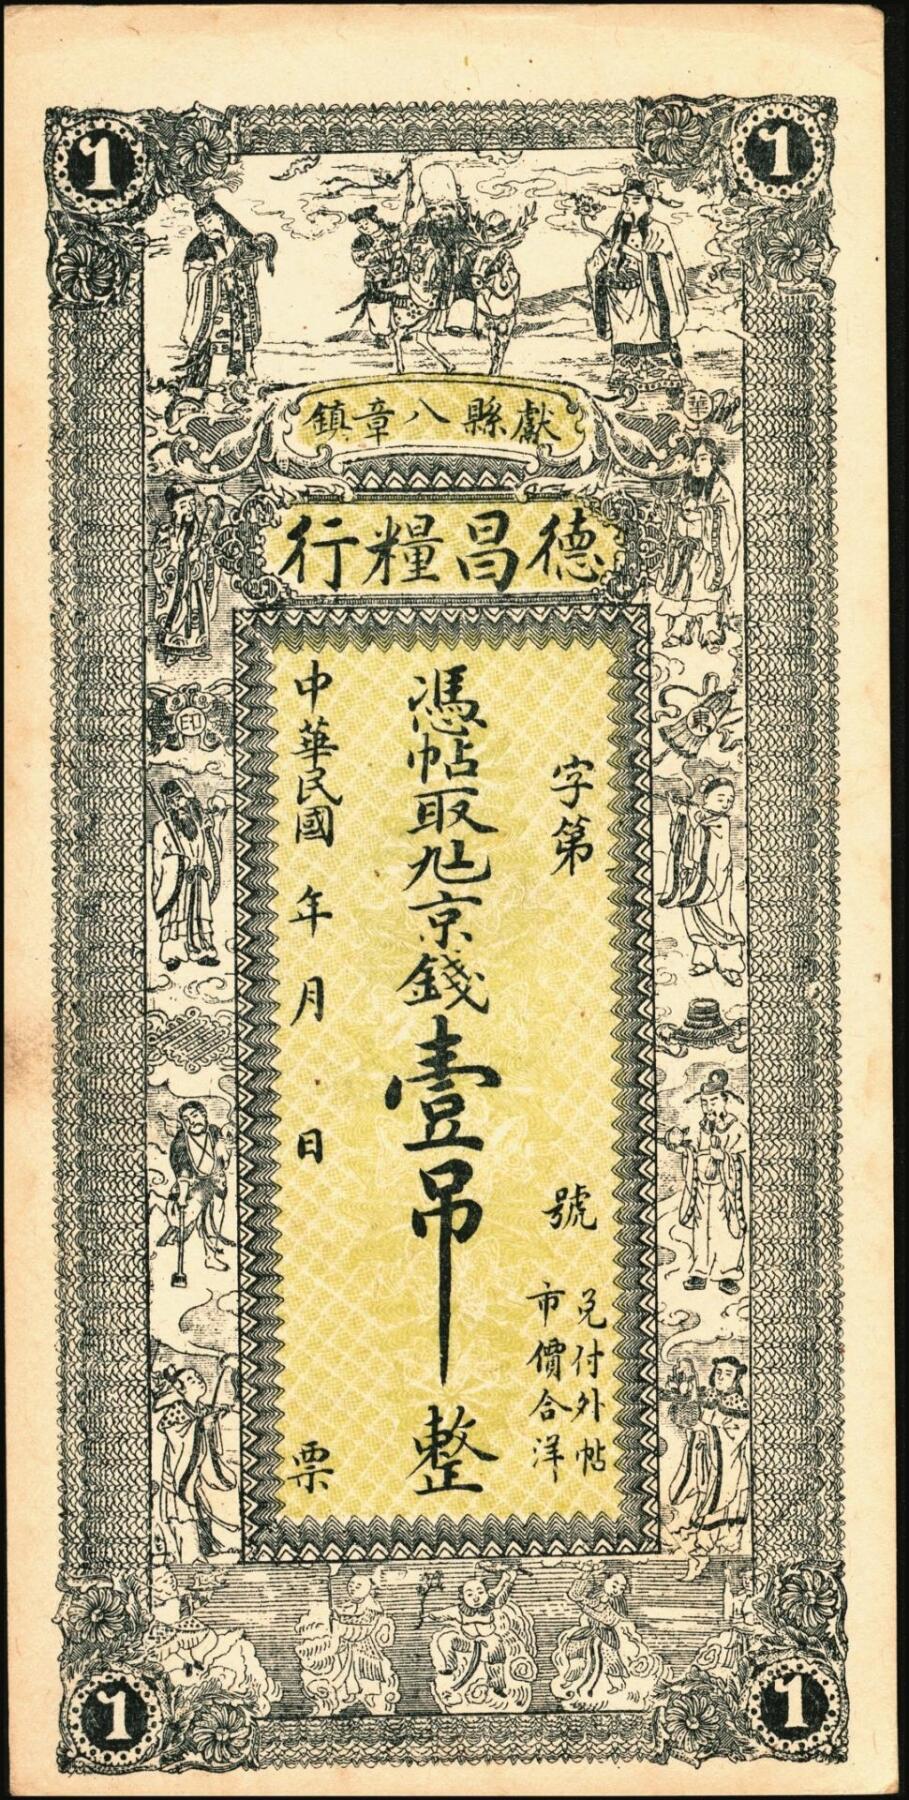 1 1
獻縣八章鎮
德昌糧行
華
字第 號
兌付外帖
市價合洋
憑帖取九京錢壹吊整
中華民國 年 月 日 票
東
印
1 1